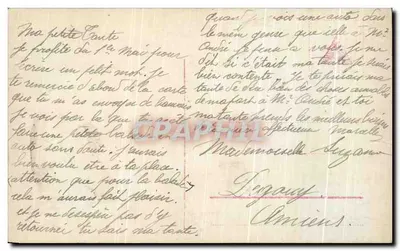 Ma petite Tante
je profite du 1er Mai pour
écrire un petit mot. Je
te remercie d'abord de la carte
que tu m'as envoyée de
je vois par la que tu as
faire une petite
auto sans doute. j'aurais
bien voulu etre à ta place
(attention que pour la balade)
cela m'aurait fait plaisir.
et je me desespère pas d'y
retourner tu sais ma tante.
quand je vois une auto dans
le même genre que celle à Mr
André je pense a vous. je me
dis si c'était ma tante je serais
bien contente. Je te
tante de dire bien des choses aimables
de ma part à Mr André et toi
ma tante reçois les meilleurs baisers
de ta Marcelle
Mademoiselle Suzanne
Amiens.